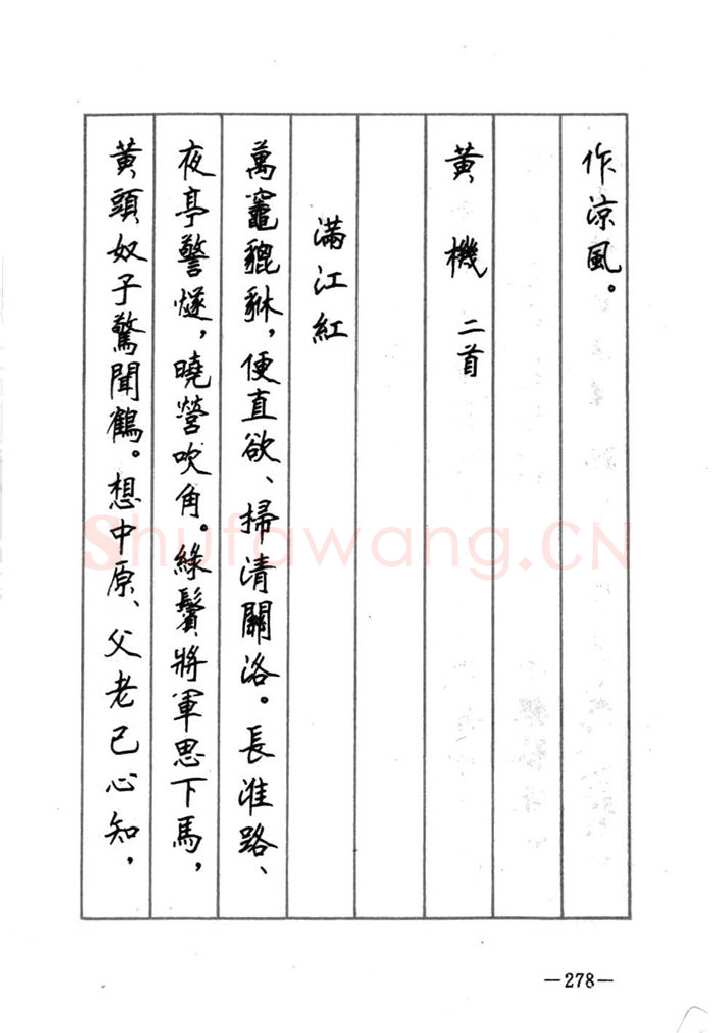 作凉風。
黄機 二首
滿江紅
萬竈貔貅，便直欲、掃清關洛。長淮路、
夜亭警燧，曉營吹角。綠鬢將軍思下馬，
黄頭奴子驚聞鶴。想中原、父老已心知，
Shufawang.CN
—278—